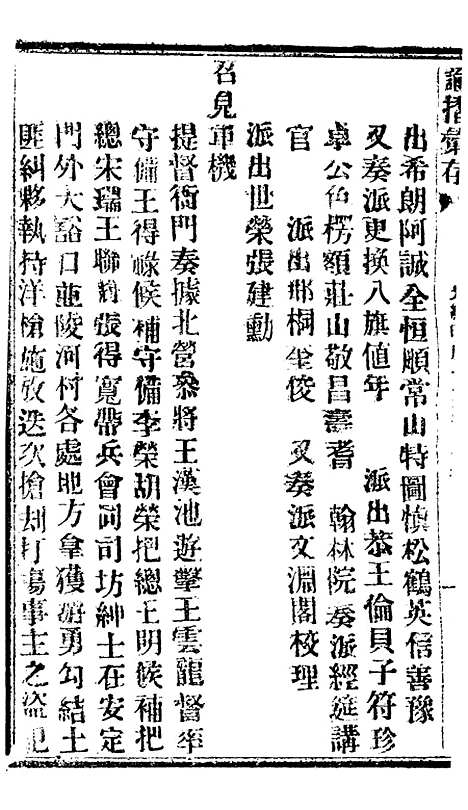 諭摺彙存
出希朗阿誠全恒順常山特圖愼松鶴英信善豫
又奏派更換八旗値年　派出恭王倫貝子符珍
卓公色楞額莊山敬昌壽耆　翰林院奏派經筵講
官　派出那桐奎俊　又奏派文淵閣校理
派出世榮張建勳
召見軍機
提督衙門奏據北營叅將王漢池遊擊王雲龍督率
守備王得祿候補守備李榮胡榮把總王明候補把
總宋瑞王聯陞張得寬帶兵會同司坊紳士在安定
門外大豁口並陵河村各處地方拿獲游勇勾結土
匪糾夥執持洋槍施放迭次搶刧打傷事主之盜犯